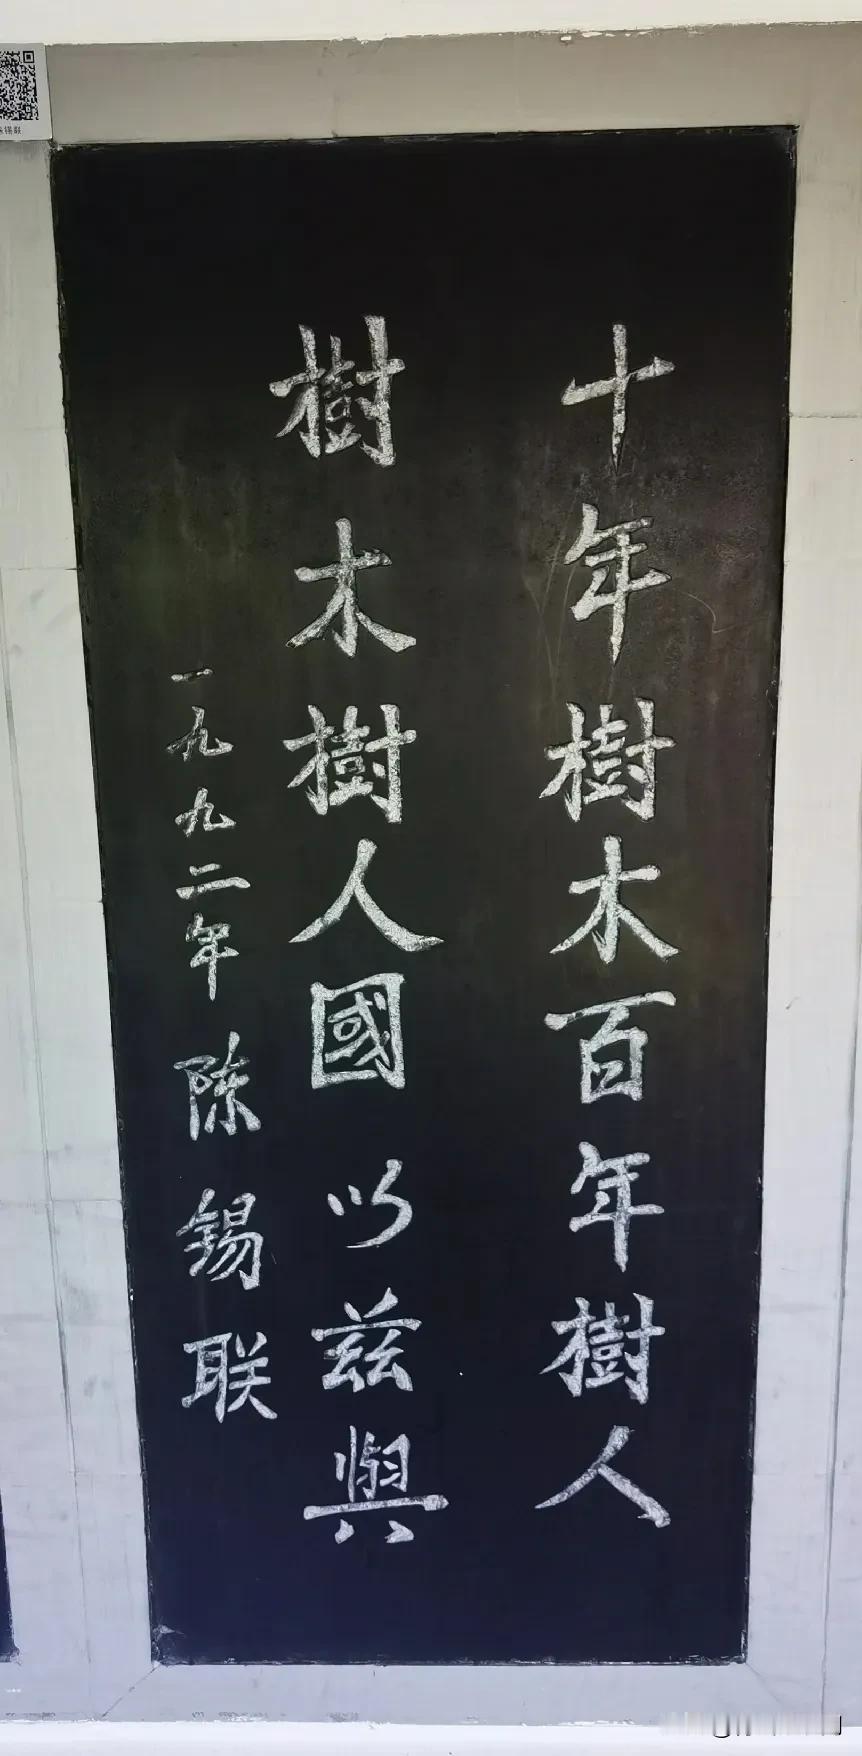 十年樹木百年樹人
樹木樹人國以兹興
一九九二年 陈锡联